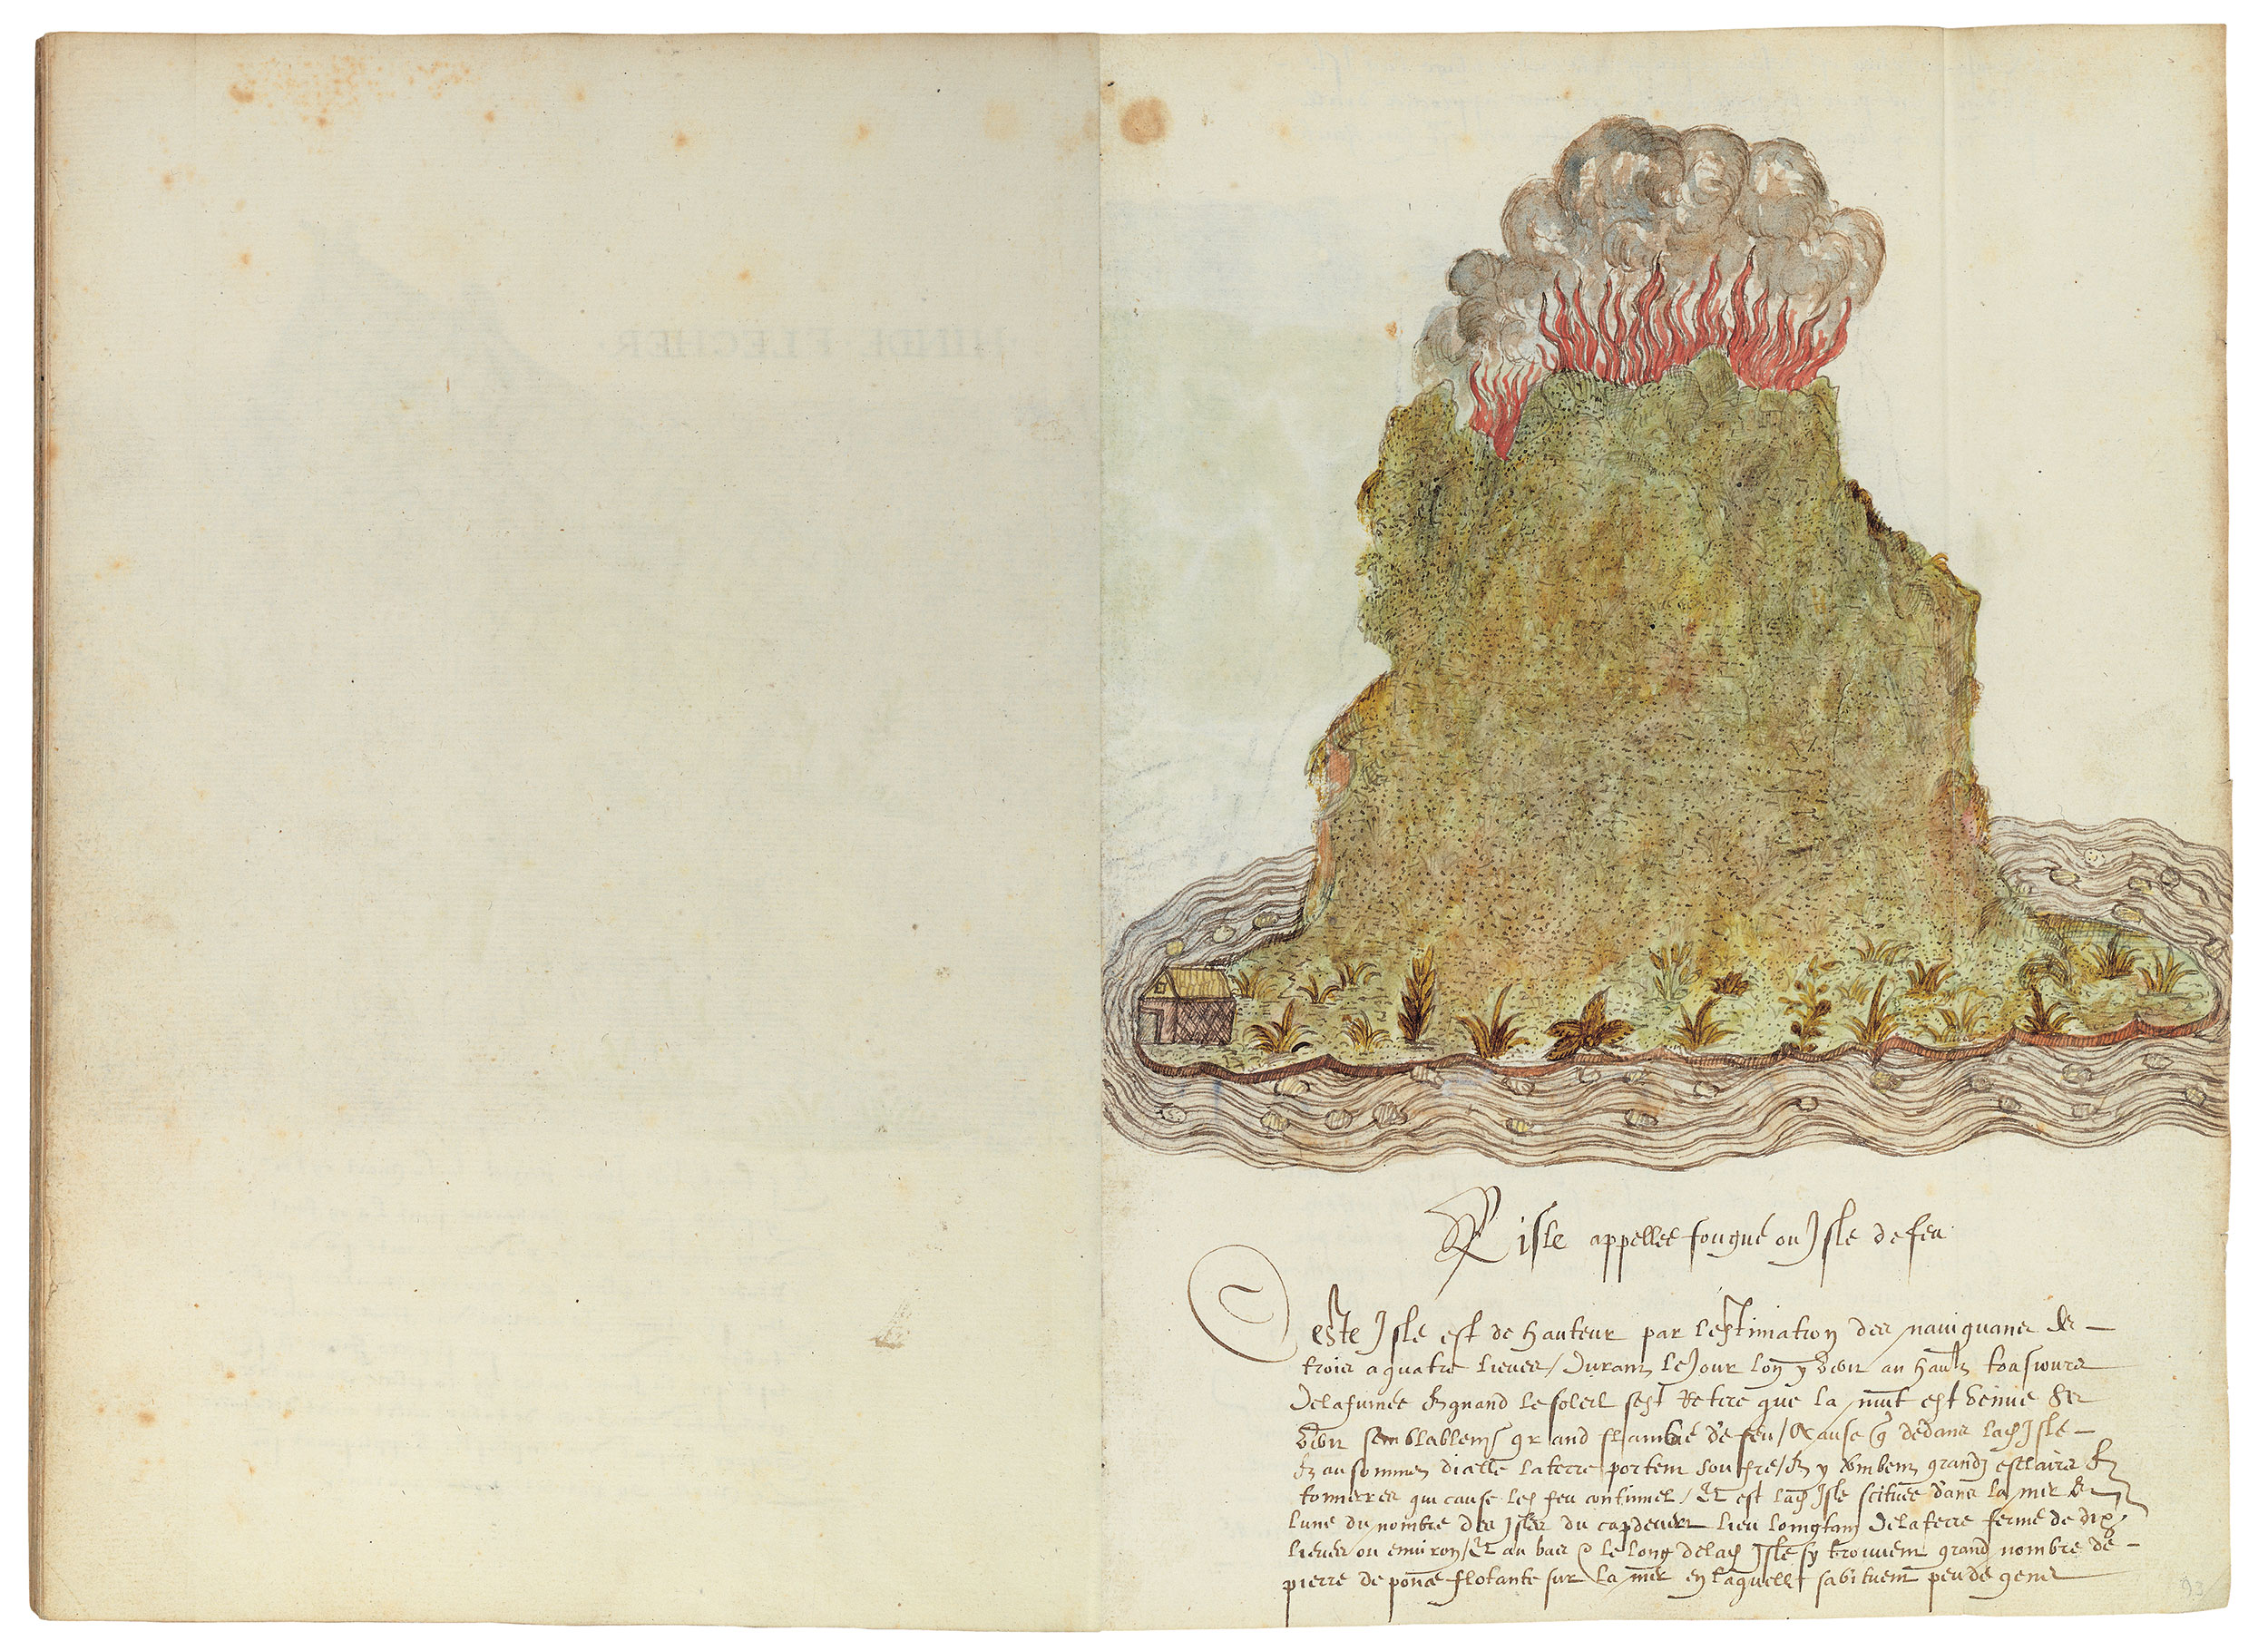 HINDE FLECHER
isle appellee fougue ou Isle de feu
Ceste Isle est de hauteur par lestimation des nauiguans de
trois a quatre lieues / Durant le Jour lon y voit au hault tousiours
De la fumee Et quand le soleil sest Retire que la nuit est venue se
voit semblablemt grand flambe de feu / A cause q dedans lad Isle
Et au sommet dicelle la terre porte souffre / Et y tombent grandz esclairs Et
tonnerres qui cause led feu continuel / Et est lad Isle scituee dans la mer Et
lune du nombre des Isles du cap de vert lieu loingtain De la terre ferme de dix
lieues ou enuiron / Et au bas Et le long de lad Isle sy trouuent grand nombre de
pierre de ponce flotante sur la mer en laquelle sabituent peu de gens
93